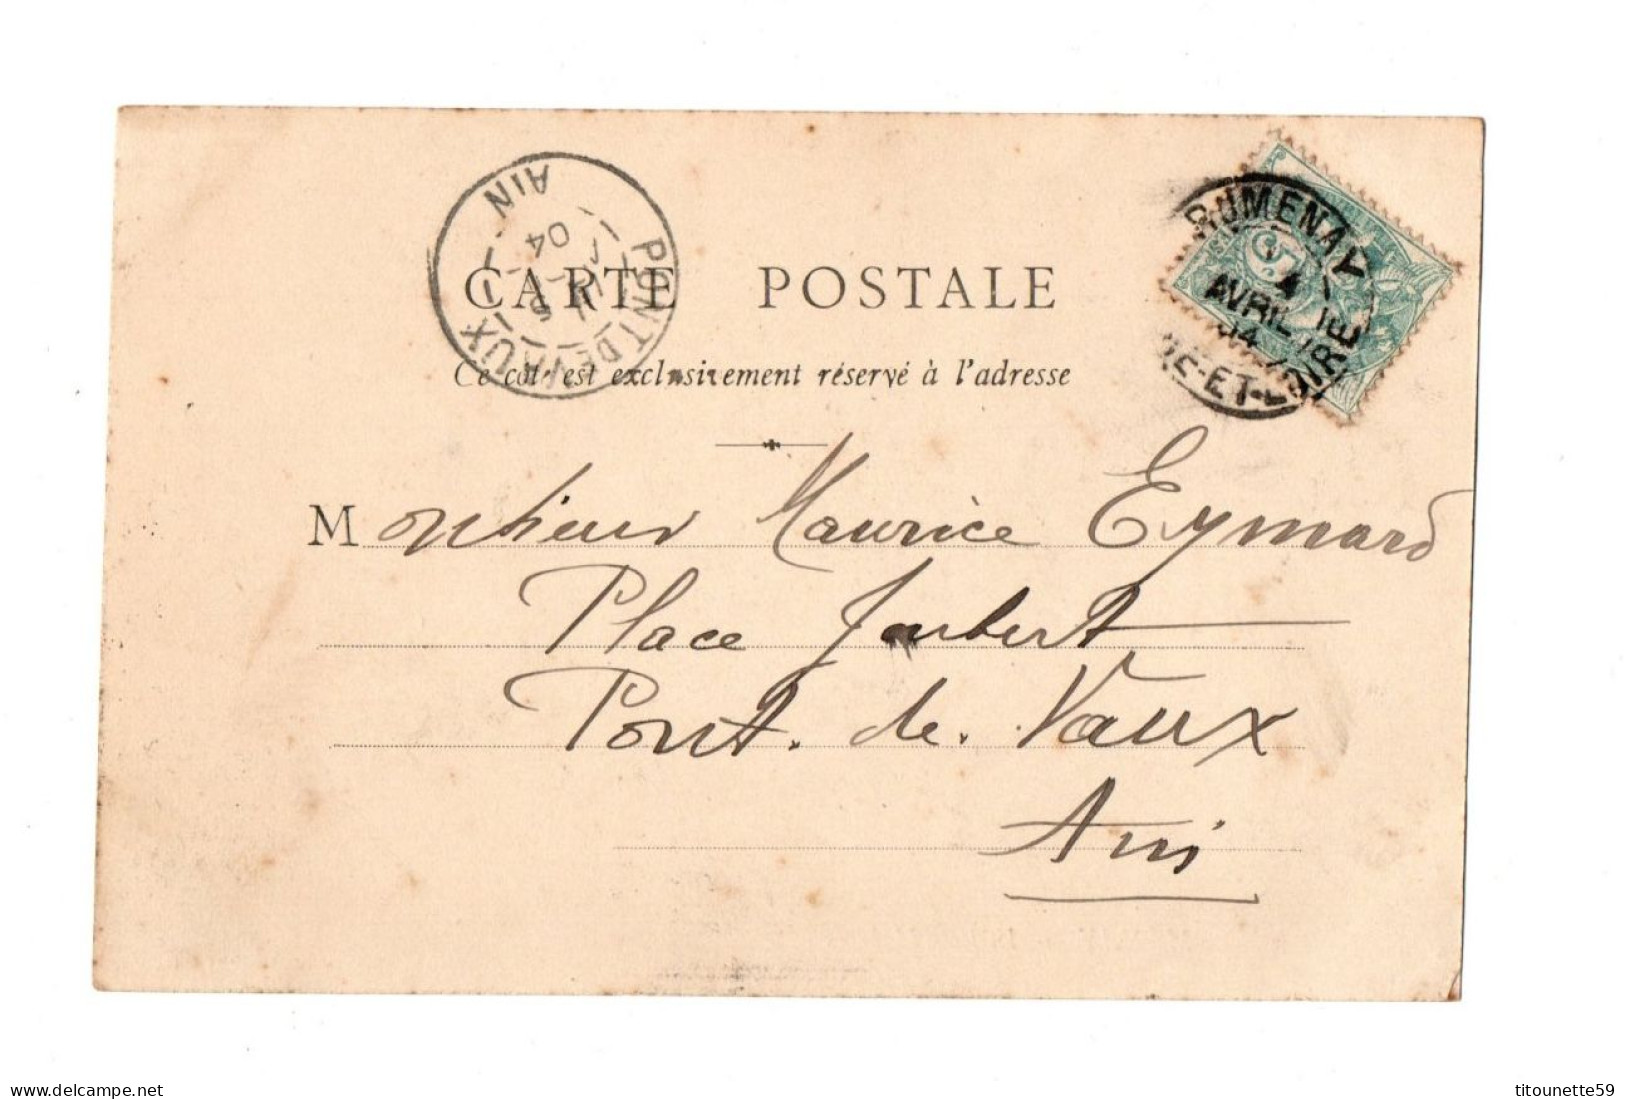 CARTE POSTALE
Ce côté est exclusivement réservé à l'adresse
Monsieur Maurice Eymard
Place Joubert
Pont. de. Vaux
Ain
PONT DE VAUX
AIN
04
ROMENAY
4
AVRIL
04
NE-ET-LOIRE
5
titounette59